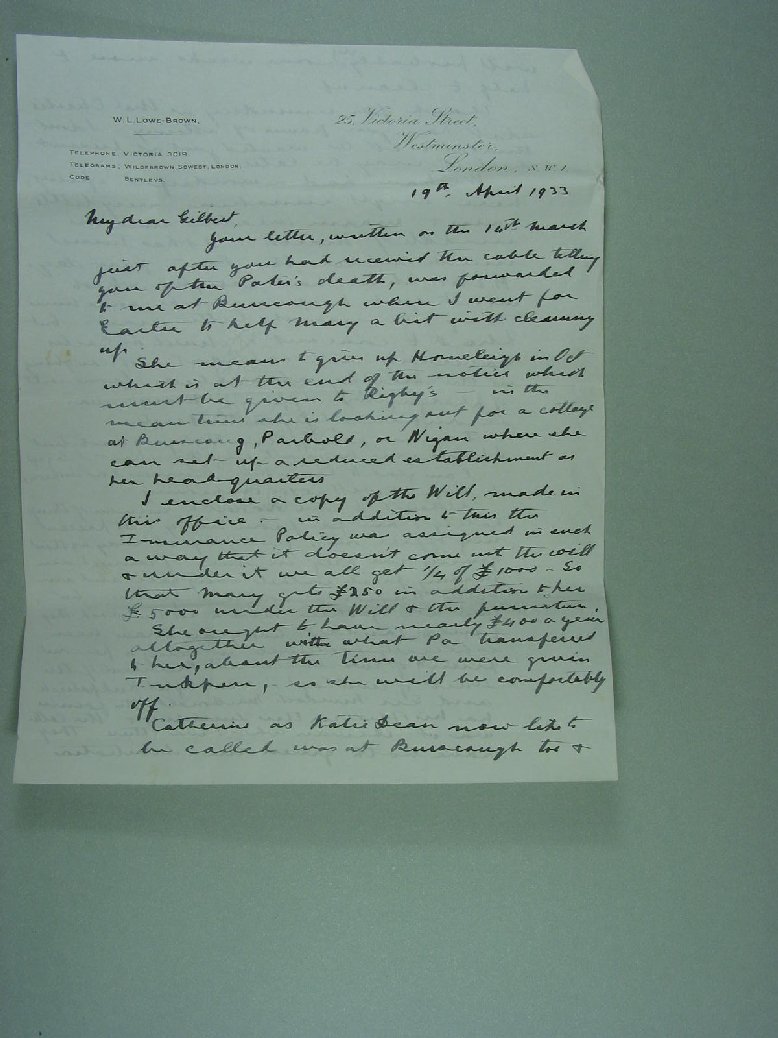 W. L. LOWE-BROWN.
25, Victoria Street,
Westminster,
London, S.W.1.
TELEPHONE VICTORIA 3019.
TELEGRAMS, WILOEBROWN SOWEST, LONDON.
CODE BENTLEYS.
19th. April 1933
My dear Gilbert,
Your letter, written on the 14th March
just after you had received the cable telling
you of the Pater's death, was forwarded
to me at Burscough where I went for
Easter to help Mary a bit with clearing
up.
She means to give up Homeleigh in Oct
which is at the end of the notice which
must be given to Rigby's - in the
mean time she is looking out for a cottage
at Burscoug, Parbold, or Wigan where she
can set up a reduced establishment as
her headquarters
I enclose a copy of the Will, made in
this office - in addition to this the
Insurance Policy was assigned in such
a way that it doesn't come into the will
& under it we all get 1/4 of £1000 - So
that Mary gets £250 in addition to her
£5000 under the Will & the furniture.
She ought to have nearly £400 a year
altogether with what Pa transferred
to her, about the time we were given
Inkpen, - so she will be comfortably
off.
Catherine as Katie Dean now likes to
be called was at Burscough too &